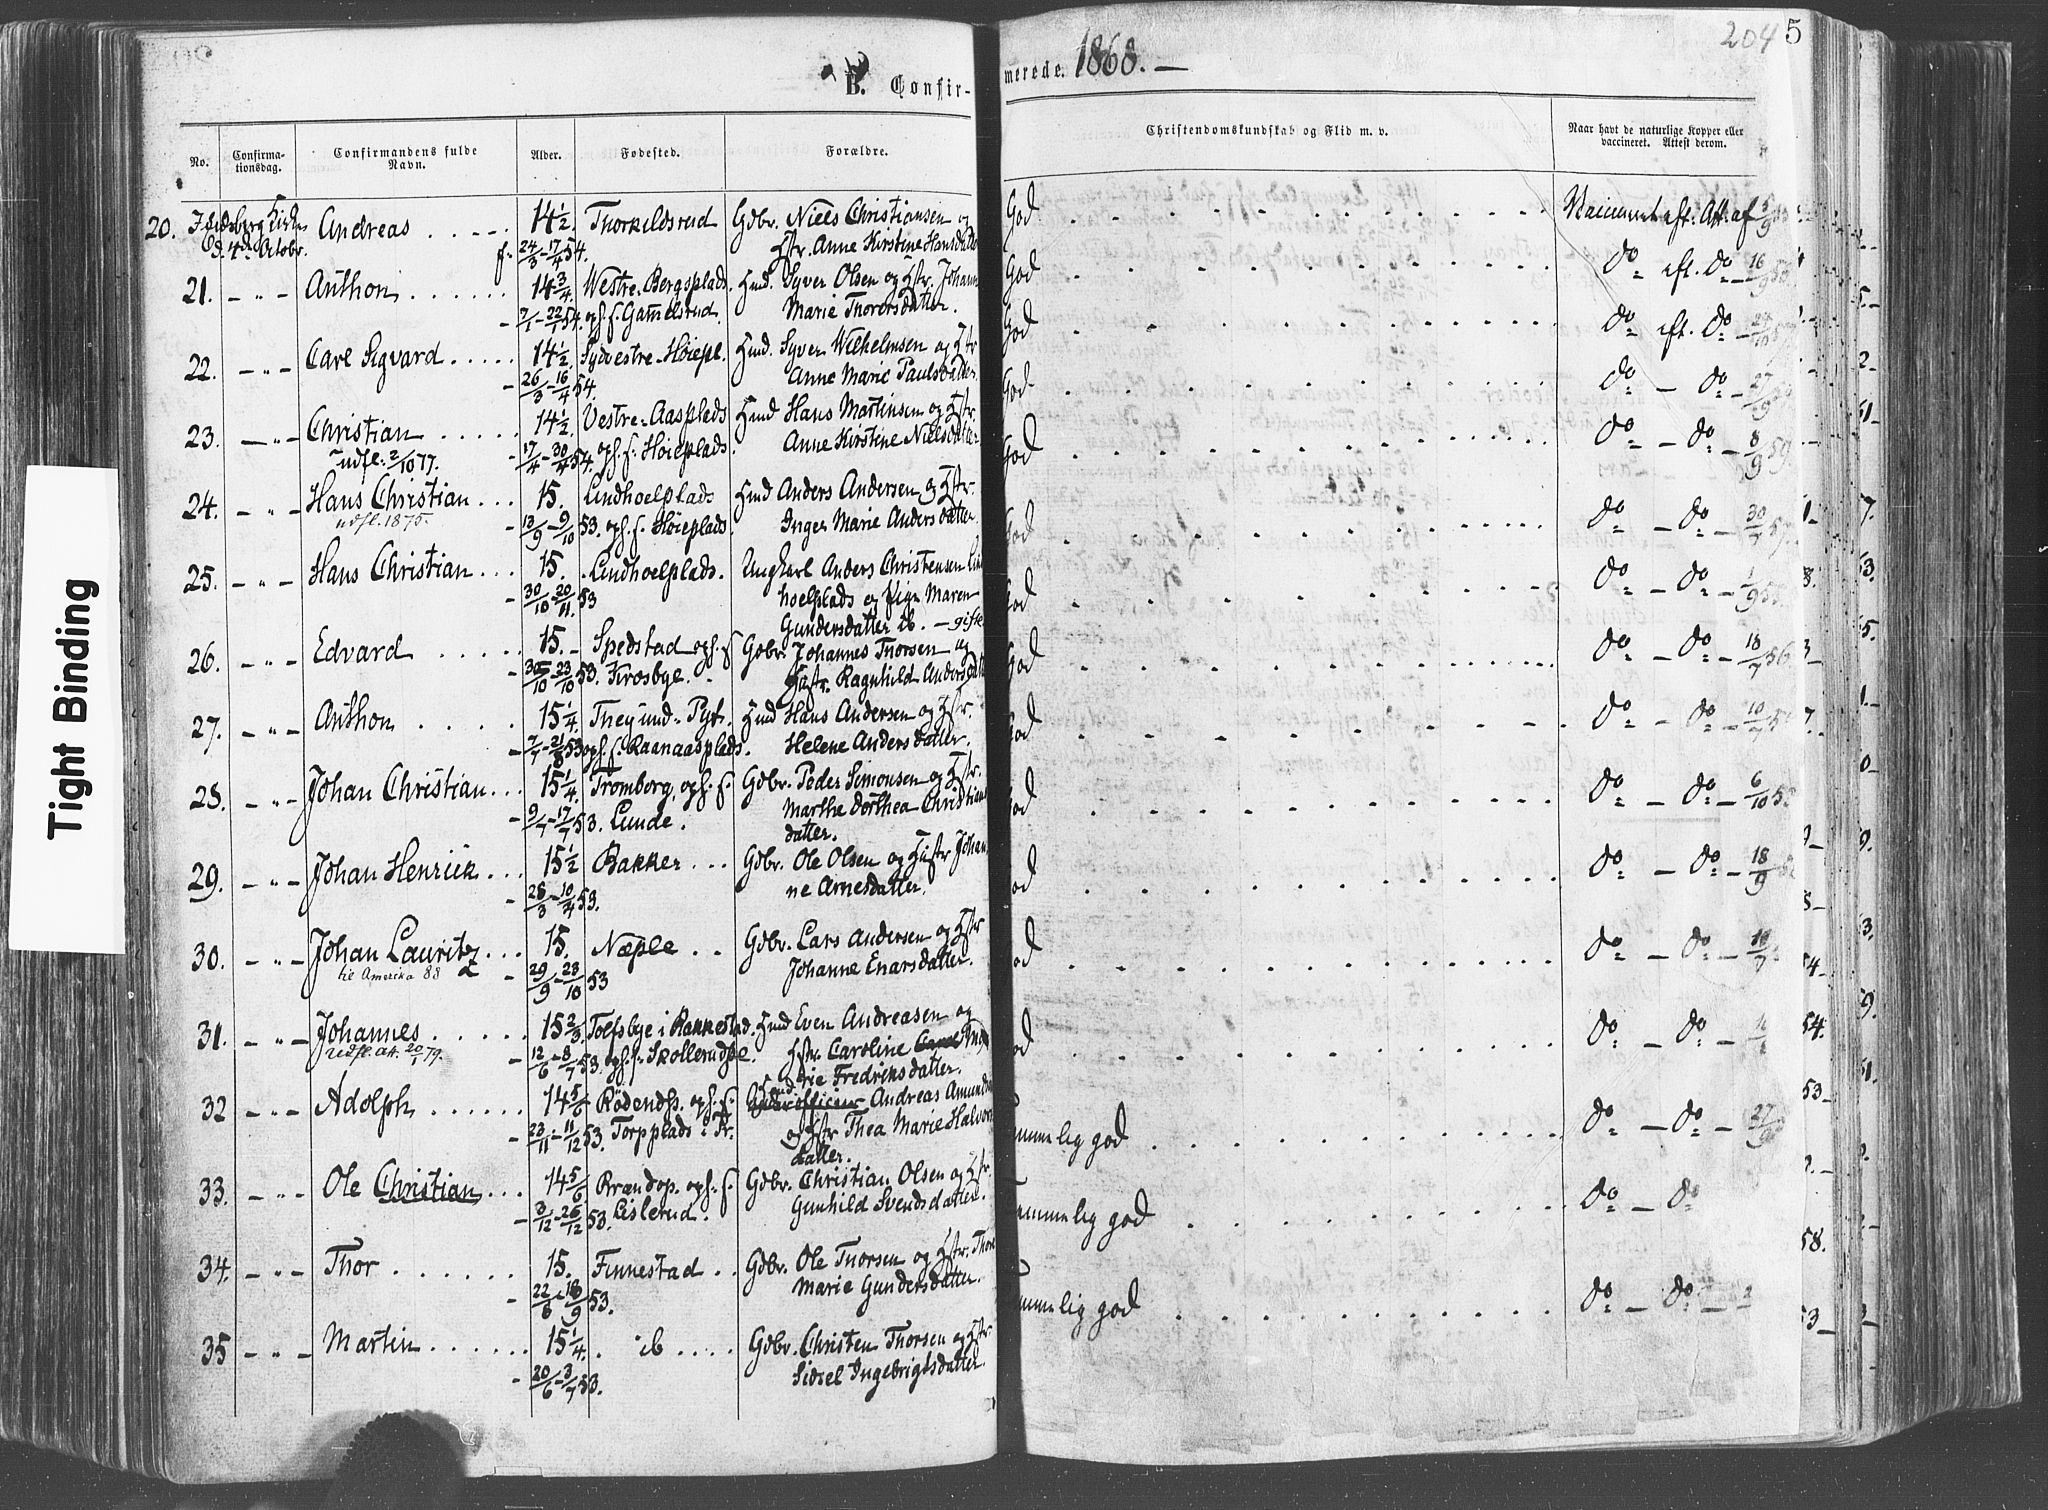 B. Confir-
merede. 1868. —
204 5
No.
Confirma-
tionsdag.
Confirmandens fulde
Navn.
Alder.
Fødested.
Forældre.
Christendomskundskab og Flid m. v.
Naar havt de naturlige Kopper eller
vaccineret. Attest derom.
Tight Binding
20. Andreas 14½ Thorkildsrud Gdbr. Niels Christiansen og God
d. 4de Octobr. f. 24/3 – 17/4 54. Hstr. Anne Kirstine Hansdatter
21. — „ — Anthon 14¾ Westre-Bergsplads. Hmd. Syver Olsen og Hstr. Johanne God do eft. do
– 7/1 – 22/1 54. oph. f. Gammelsrud. Marie Thorersdatter.
22. — „ — Carl Sigvard 14½ Sydvestre-Høiepl. Hmd. Syver Wilhelmsen og Hstr God do eft. do
– 26/3 – 16/4 54. Anne Marie Paulsdatter
23. — „ — Christian 14½ Vestre-Aasplads Hmd Hans Martinsen og Hstr. God do — do
udfl. 2/10 77. – 17/4 – 30/4 54. oph. f. Høieplads. Anne Kirstine Nielsdatter
24. — „ — Hans Christian 15. Lindhoelplads Hmd Anders Andersen og Hstr. God do — do — 8/9 59.
udfl. 1875. – 13/9 – 9/10 53. oph. f. Høieplads. Inger Marie Andersdatter.
25. — „ — Hans Christian 15. Lindhoelplads. Ungkarl Anders Christensen Lind God do — do — 30/7 57.
– 30/10 – 20/11 53 hoelplads og Pige Maren
Gundersdatter ib. — gifte
26. — „ — Edvard 15. Spedstad oph. f Gdbr. Johannes Thorsen og God do — do
– 23/10 53. Krosbye. Hustr. Ragnhild Andersdatter
27. — „ — Anthon 15¼ Hmd Hans Andersen og Hstr. God do — do — 18/7 56
– 7/7 – 21/8 53 oph. f. Raanaasplads. Helene Andersdatter.
28. — „ — Johan Christian 15¼ Tromborg, oph. f. Gdbr. Peder Simonsen og Hstr. God do — do — 10/7
– 9/7 – 17/7 53. Lunde. Marthe Dorthea Christians
datter.
29. — „ — Johan Henrick 15½ Bakker Gdbr. Ole Olsen og Hustr Johan God do — do — 6/10
– 28/3 – 10/4 53. ne Arnesdatter.
30. — „ — Johan Lauritz 15. Næple Gdbr. Lars Andersen og Hstr God do — do — 18/9
til Amerika 88 – 29/9 – 23/10 53 Johanne Enarsdatter.
31. — „ — Johannes 15⅔ Toefsbye i Rakkestad. Hmd Even Andreasen og God do — do
udfl. att. 20/1 79. – 12/6 – 8/7 53. oph. f. Skollerudpl. Hstr. Caroline
rie Fredriksdatter.
32 — „ — Adolph 14⅚ Rødenæss. oph. f. Hmd Andreas Amundsen Temmelig god do — do
– 23/11 – 11/12 53. Torpplads i Tr. og Hstr Thea Marie Halvors
datter.
33. — „ — Ole Christian 14⅚ Brændop. oph. f. Gdbr. Christian Olsen og Hstr. Temmelig god do — do — 27/9
– 3/12 – 26/12 53. Lislerud. Gunhild Svendsdatter.
34. — „ — Thor 15. Finnestad Gdbr. Ole Thorsen og Hstr. Thore Temmelig god do — do
– 22/8 – 18/9 53. Marie Gundersdatter.
35 — „ — Martin 15¼ ib Gdbr. Christen Thorsen og Hstr do — do
– 20/6 – 3/7 53. Sidsel Ingebrigtsdatter.